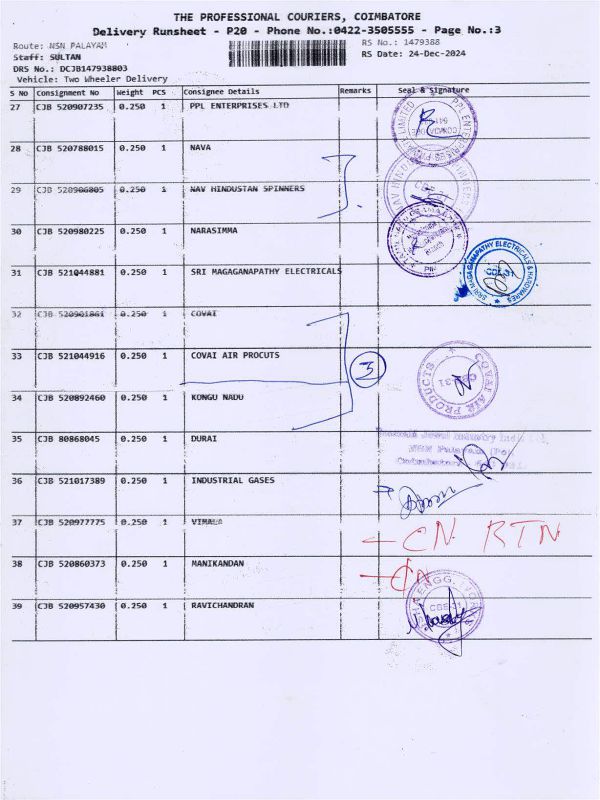 THE PROFESSIONAL COURIERS, COIMBATORE
Delivery Runsheet - P20 - Phone No.:0422-3505555 - Page No.:3
Route: NSN PALAYAM RS No.: 1479388
Staff: SULTAN RS Date: 24-Dec-2024
DRS No.: DCJB147938803
Vehicle: Two Wheeler Delivery
S No Consignment No Weight PCS Consignee Details Remarks Seal & Signature
27 CJB 520907235 0.250 1 PPL ENTERPRISES LTD
28 CJB 520788015 0.250 1 NAVA
29 CJB 520906805 0.250 1 NAV HINDUSTAN SPINNERS
30 CJB 520980225 0.250 1 NARASIMMA
31 CJB 521044881 0.250 1 SRI MAGAGANAPATHY ELECTRICALS
SRI MAGAGANAPATHY ELECTRICALS & HARDWARES
CBE-31
32 CJB 520901861 0.250 1 COVAI
33 CJB 521044916 0.250 1 COVAI AIR PROCUTS
3
COVAI AIR PRODUCTS
34 CJB 520892460 0.250 1 KONGU NADU
35 CJB 80868045 0.250 1 DURAI
36 CJB 521017389 0.250 1 INDUSTRIAL GASES
37 CJB 520977775 0.250 1 VIMALA
CN RTN
38 CJB 520860373 0.250 1 MANIKANDAN
CN
39 CJB 520957430 0.250 1 RAVICHANDRAN